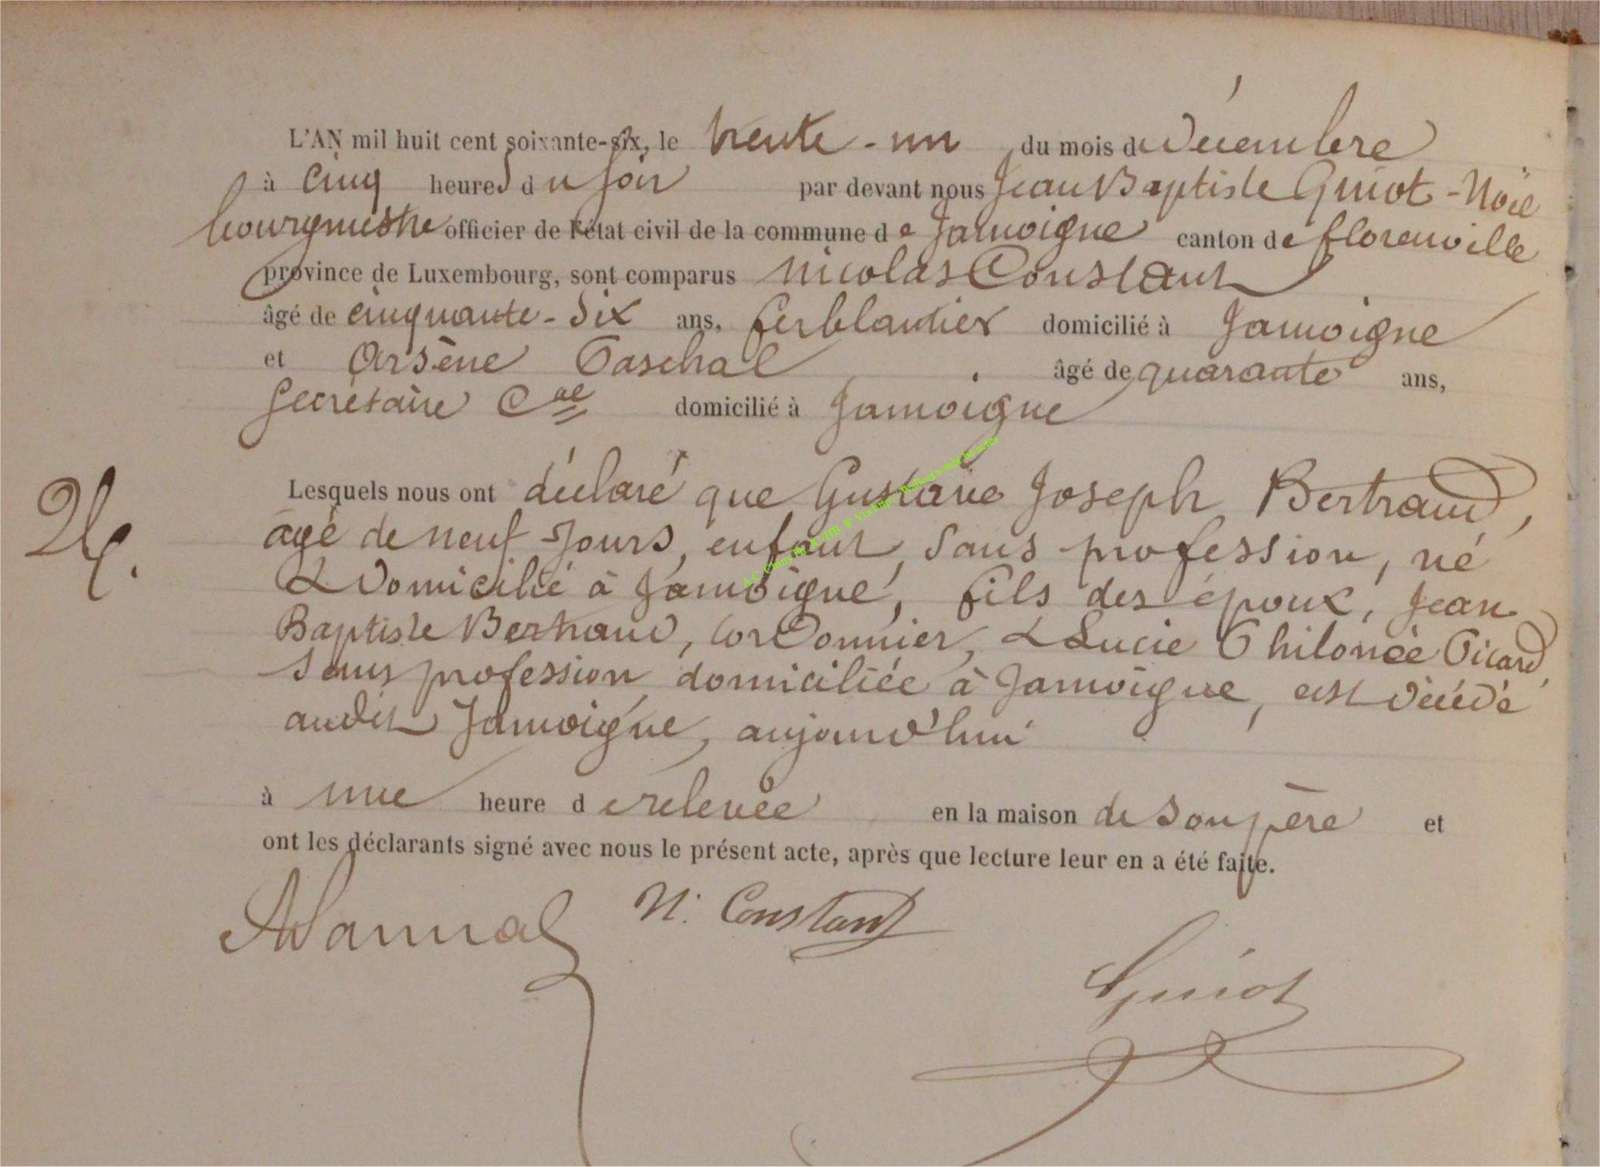 L'AN mil huit cent soixante-six, le trente-un du mois de décembre
à cinq heures du soir par devant nous Jean Baptiste Guiot-Noël
bourgmestre officier de l'état civil de la commune de Jamoigne canton de florenville
province de Luxembourg, sont comparus Nicolas Constant
âgé de cinquante-six ans, ferblantier domicilié à Jamoigne
et Arsène Paschal âgé de quarante ans,
Secrétaire Cal domicilié à Jamoigne
Lesquels nous ont déclaré que Gustave Joseph Bertrand,
âgé de neuf jours, enfant, sans profession, né
& domicilié à Jamoigne, fils des époux, Jean
Baptiste Bertrand, cordonnier, & Lucie Philonée Picard,
sans profession domiciliée à Jamoigne, est décédé
audit Jamoigne, aujourd'hui
à une heure de relevée en la maison de son père et
ont les déclarants signé avec nous le présent acte, après que lecture leur en a été faite.
N. Constant
Guiot